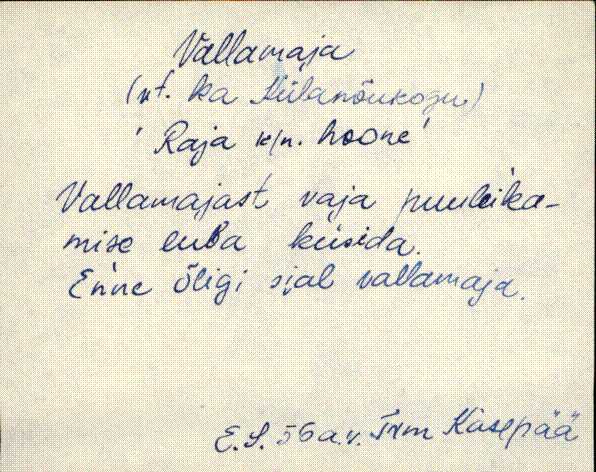 Vallamaja
(vt. ka Külanõukogu)
' Raja k/n. hoone'
Vallamajast vaja puuleika-
mise luba küsida.
Enne õligi sial vallamaja.
E.S. 56 a.v. Trm Kasepää